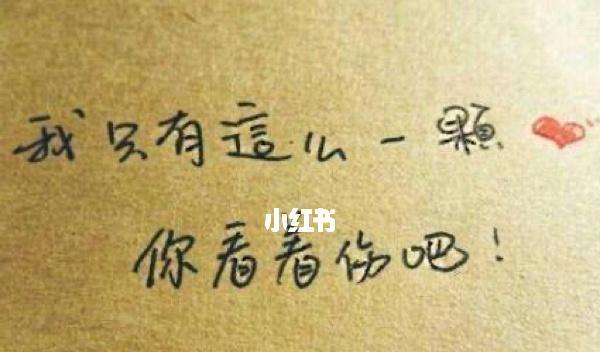 我只有這么一顆❤
小红书
你看着伤吧！